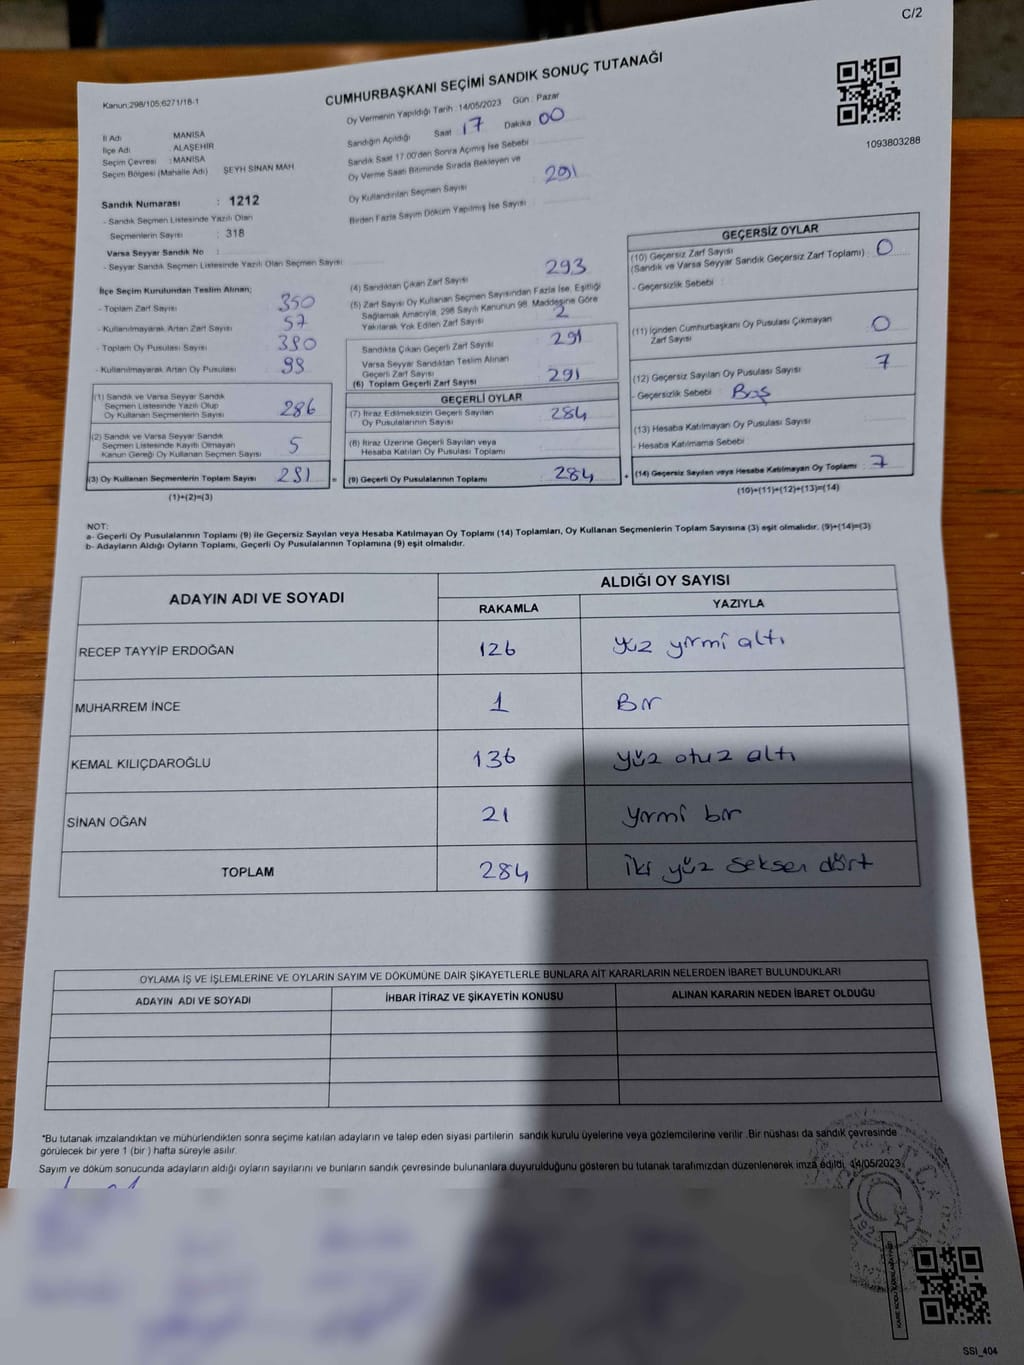 C/2
Kanun:298/105;6271/18-1
CUMHURBAŞKANI SEÇİMİ SANDIK SONUÇ TUTANAĞI
1093803288
İl Adı : MANİSA
İlçe Adı : ALAŞEHİR
Seçim Çevresi : MANİSA
Seçim Bölgesi (Mahalle Adı) ŞEYH SİNAN MAH
Sandık Numarası : 1212
- Sandık Seçmen Listesinde Yazılı Olan
Seçmenlerin Sayısı : 318
Varsa Seyyar Sandık No :
- Seyyar Sandık Seçmen Listesinde Yazılı Olan Seçmen Sayısı:
Oy Vermenin Yapıldığı Tarih :14/05/2023 Gün : Pazar
Sandığın Açıldığı Saat 17 Dakika 00
Sandık Saat 17.00'den Sonra Açımış İse Sebebi :
Oy Verme Saati Bitiminde Sırada Bekleyen ve
Oy Kullandırılan Seçmen Sayısı 291
Birden Fazla Sayım Döküm Yapılmış İse Sayısı :
İlçe Seçim Kurulundan Teslim Alınan;
- Toplam Zarf Sayısı : 350
- Kullanılmayarak Artan Zarf Sayısı : 57
- Toplam Oy Pusulası Sayısı : 390
- Kullanılmayarak Artan Oy Pusulası : 99
(1) Sandık ve Varsa Seyyar Sandık
Seçmen Listesinde Yazılı Olup
Oy Kullanan Seçmenlerin Sayısı 286
(2) Sandık ve Varsa Seyyar Sandık
Seçmen Listesinde Kayıtlı Olmayan
Kanun Gereği Oy Kullanan Seçmen Sayısı 5
(3) Oy Kullanan Seçmenlerin Toplam Sayısı 291 =
(1)+(2)=(3)
(4) Sandıktan Çıkan Zarf Sayısı 293
(5) Zarf Sayısı Oy Kullanan Seçmen Sayısından Fazla İse, Eşitliği
Sağlamak Amacıyla, 298 Sayılı Kanunun 98. Maddesine Göre
Yakılarak Yok Edilen Zarf Sayısı 2
Sandıkta Çıkan Geçerli Zarf Sayısı 291
Varsa Seyyar Sandıktan Teslim Alınan
Geçerli Zarf Sayısı
(6) Toplam Geçerli Zarf Sayısı 291
GEÇERLİ OYLAR
(7) İtiraz Edilmeksizin Geçerli Sayılan
Oy Pusulalarının Sayısı 284
(8) İtiraz Üzerine Geçerli Sayılan veya
Hesaba Katılan Oy Pusulası Toplamı
(9) Geçerli Oy Pusulalarının Toplamı 284 +
GEÇERSİZ OYLAR
(10) Geçersiz Zarf Sayısı
(Sandık ve Varsa Seyyar Sandık Geçersiz Zarf Toplamı) : 0
- Geçersizlik Sebebi :
(11) İçinden Cumhurbaşkanı Oy Pusulası Çıkmayan
Zarf Sayısı 0
(12) Geçersiz Sayılan Oy Pusulası Sayısı : 7
- Geçersizlik Sebebi : Boş
(13) Hesaba Katılmayan Oy Pusulası Sayısı
- Hesaba Katılmama Sebebi :
(14) Geçersiz Sayılan veya Hesaba Katılmayan Oy Toplamı : 7
(10)+(11)+(12)+(13)=(14)
NOT:
a- Geçerli Oy Pusulalarının Toplamı (9) ile Geçersiz Sayılan veya Hesaba Katılmayan Oy Toplamı (14) Toplamları, Oy Kullanan Seçmenlerin Toplam Sayısına (3) eşit olmalıdır. (9)+(14)=(3)
b- Adayların Aldığı Oyların Toplamı, Geçerli Oy Pusulalarının Toplamına (9) eşit olmalıdır.
ADAYIN ADI VE SOYADI ALDIĞI OY SAYISI
RAKAMLA YAZIYLA
RECEP TAYYİP ERDOĞAN 126 yüz yirmi altı
MUHARREM İNCE 1 Bir
KEMAL KILIÇDAROĞLU 136 yüz otuz altı
SİNAN OĞAN 21 yirmi bir
TOPLAM 284 iki yüz seksen dört
OYLAMA İŞ VE İŞLEMLERİNE VE OYLARIN SAYIM VE DÖKÜMÜNE DAİR ŞİKAYETLERLE BUNLARA AİT KARARLARIN NELERDEN İBARET BULUNDUKLARI
ADAYIN ADI VE SOYADI İHBAR İTİRAZ VE ŞİKAYETİN KONUSU ALINAN KARARIN NEDEN İBARET OLDUĞU
*Bu tutanak imzalandıktan ve mühürlendikten sonra seçime katılan adayların ve talep eden siyasi partilerin sandık kurulu üyelerine veya gözlemcilerine verilir .Bir nüshası da sandık çevresinde
görülecek bir yere 1 (bir ) hafta süreyle asılır.
Sayım ve döküm sonucunda adayların aldığı oyların sayılarını ve bunların sandık çevresinde bulunanlara duyurulduğunu gösteren bu tutanak tarafımızdan düzenlenerek imza edildi. 14/05/2023
T.C.
SSI_404